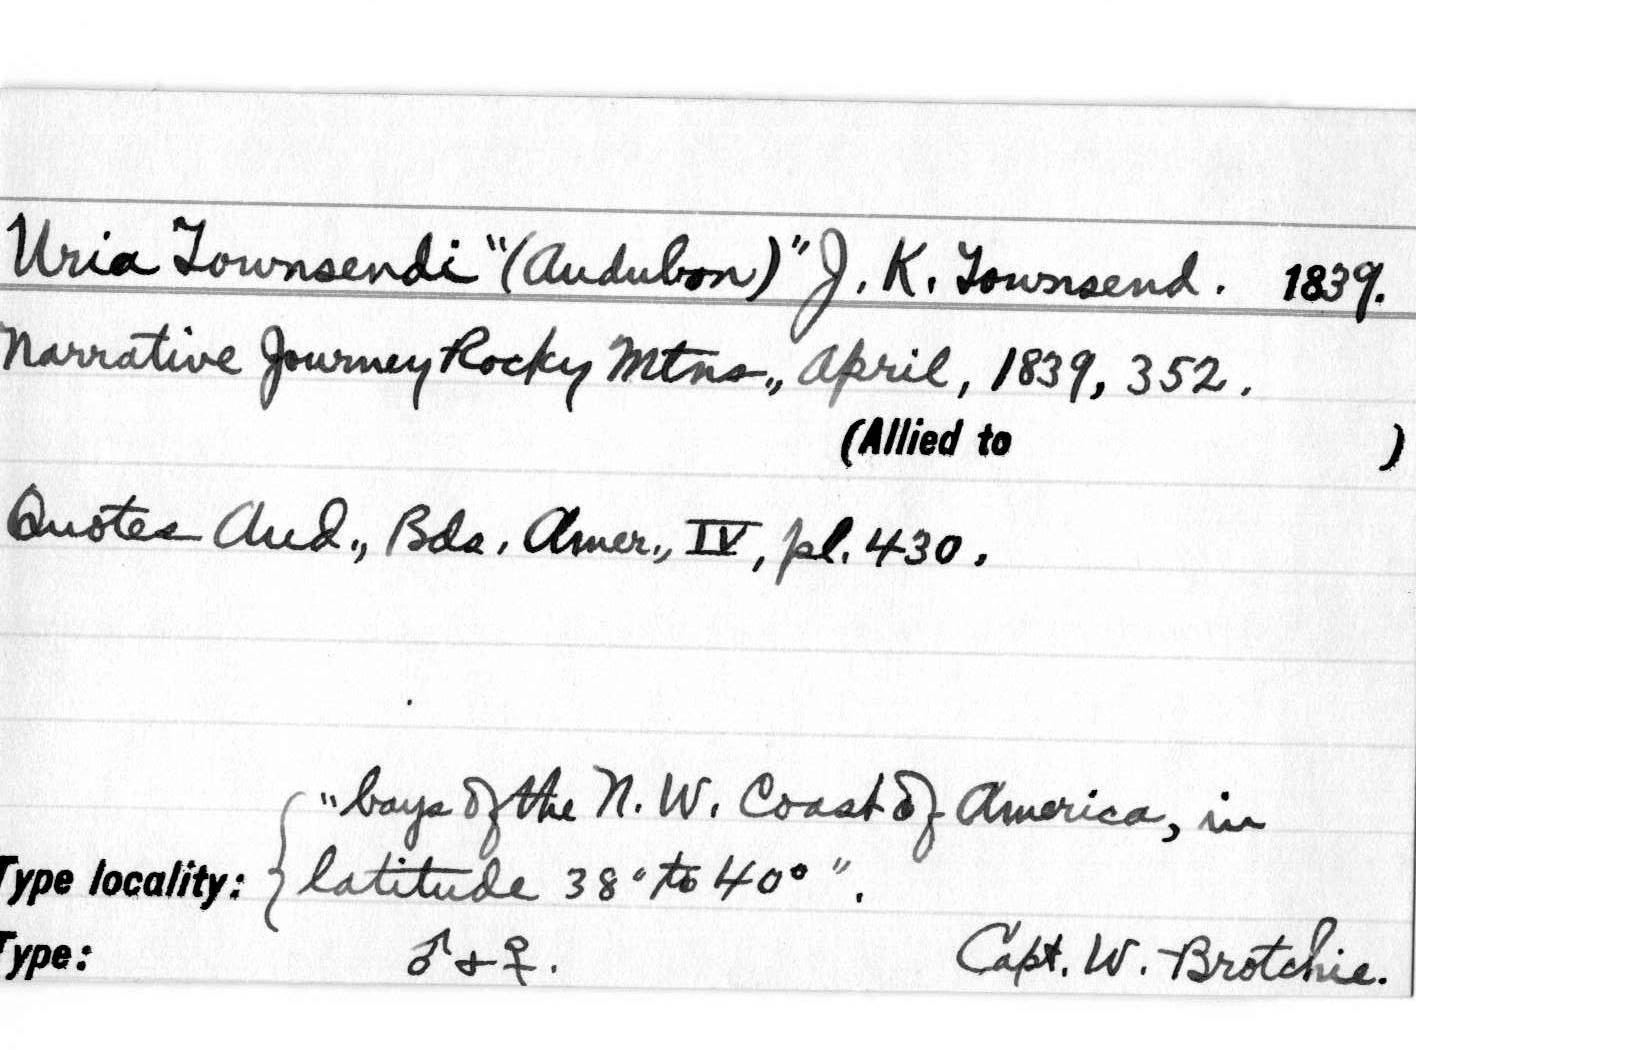 Uria Townsendi "(Audubon)" J. K. Townsend. 1839.
Narrative Journey Rocky Mtns., April, 1839, 352.
(Allied to )
Quotes Aud., Bds. Amer., IV, pl. 430.
"bays of the N. W. Coast of America, in
Type locality: latitude 38° to 40°".
Type: ♂ & ♀. Capt. W. Brotchie.